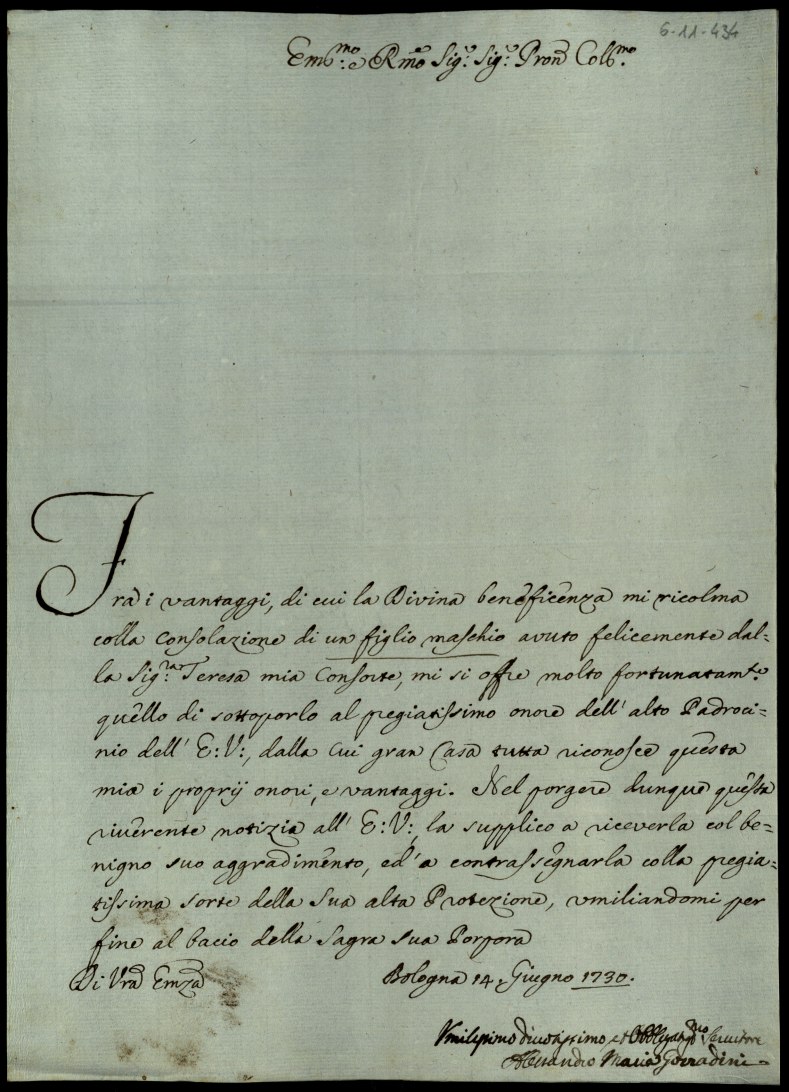 6-11-434
Em̃o: e Rm̃o Sig.r Sig.r Pron̄ Colb.mo
Frà i vantaggi, di cui la Divina beneficenza mi ricolma
colla Consolazione di un figlio maschio avuto felicemente dal=
la Sig.ra Teresa mia Consorte, mi si offre molto fortunatam.te
quello di sottoporlo al pregiatissimo onore dell' alto Padroci=
nio dell' E:V:, dalla cui gran Casa tutta riconosce questa
mia i proprij onori, e vantaggi. Nel porgere dunque questa
riverente notizia all' E:V:, la supplico a riceverla col be=
nigno suo aggradimento, ed' a contrassegnarla colla pregia=
tissima sorte della Sua alta Protezione, umiliandomi per
fine al bacio della Sagra sua Porpora
Di Vrā Emz̄a Bologna 14. Giugno 1730.
Vmilissimo divotissimo et Obbligat.mo Servitore
Alessandro Maria Gozzadini